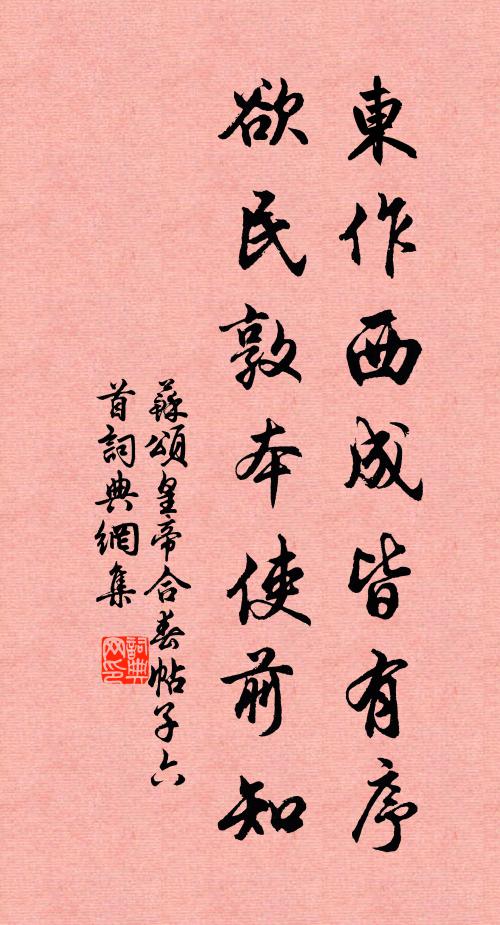 東作西成皆有序
欲民敦本使前知
蘇頌皇帝合春帖子六
首詞典網集
詞典網印